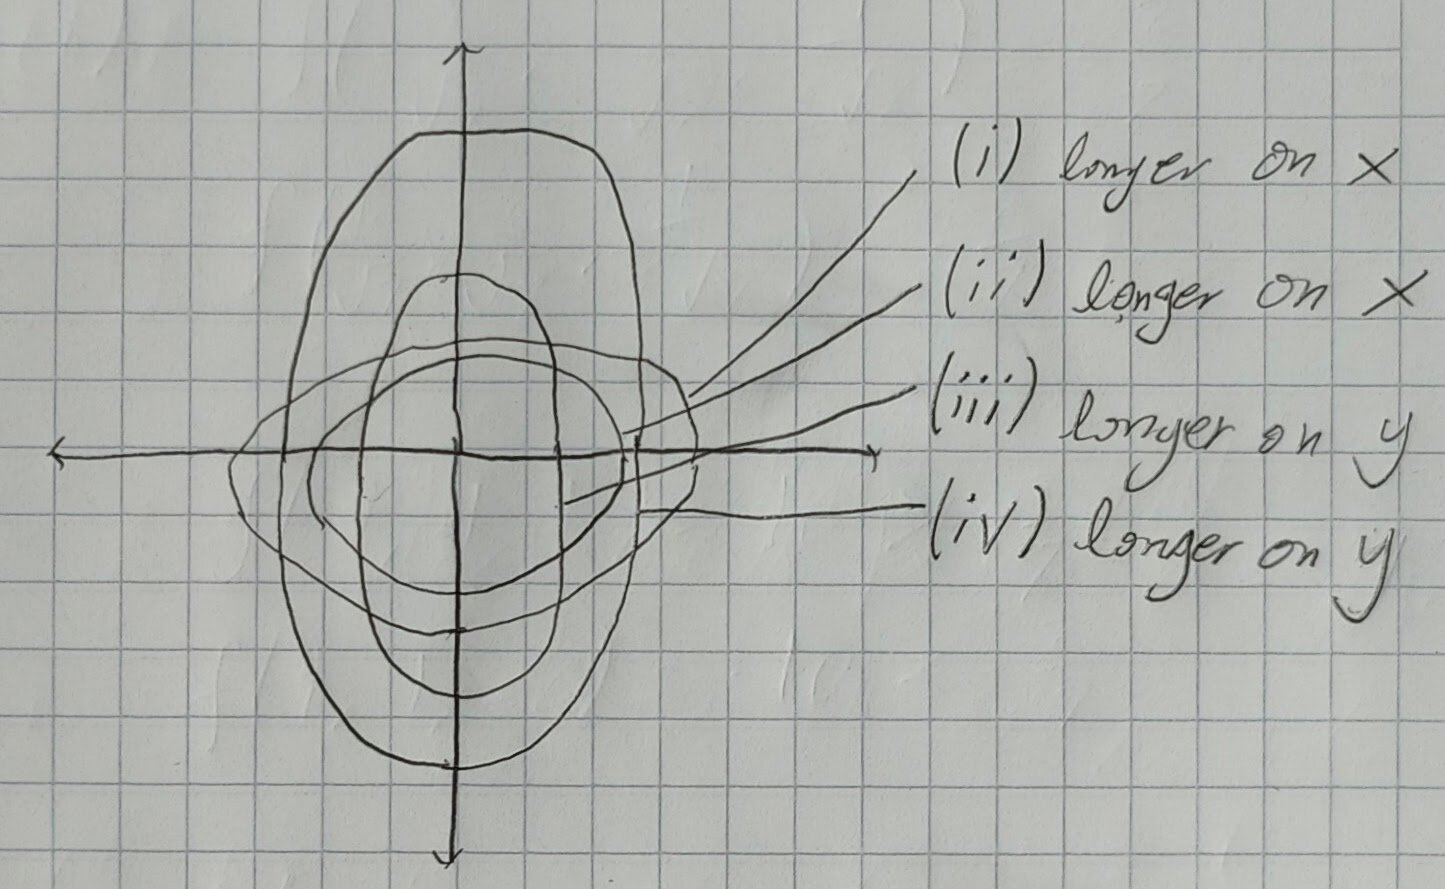 (i) longer on x
(ii) longer on x
(iii) longer on y
(iv) longer on y